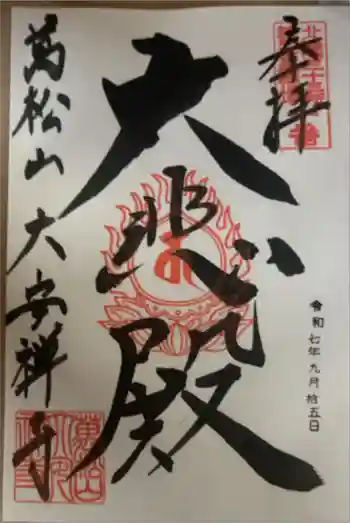 奉拝
大悲殿
萬松山大安禅寺
令和七年九月拾五日